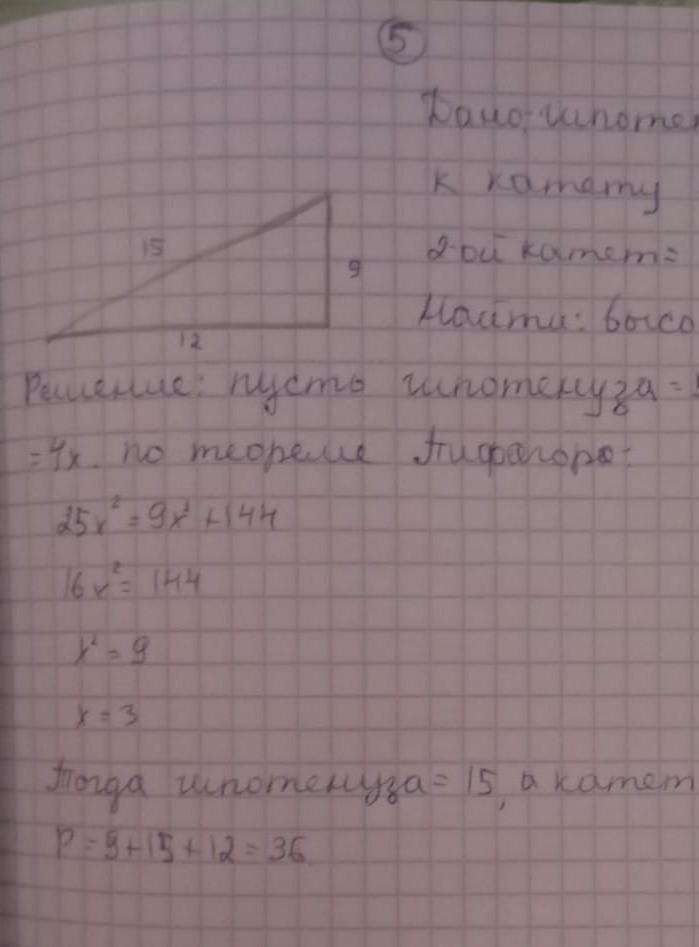 5
Дано: гипотен
к катету
15
2-ой катет=
9
Найти: высо
12
Решение: пусть гипотенуза =
=4x. по теореме Пифагора:
25x²=9x²+144
16x²=144
x²=9
x=3
Тогда гипотенуза=15, а катет
P=9+15+12=36